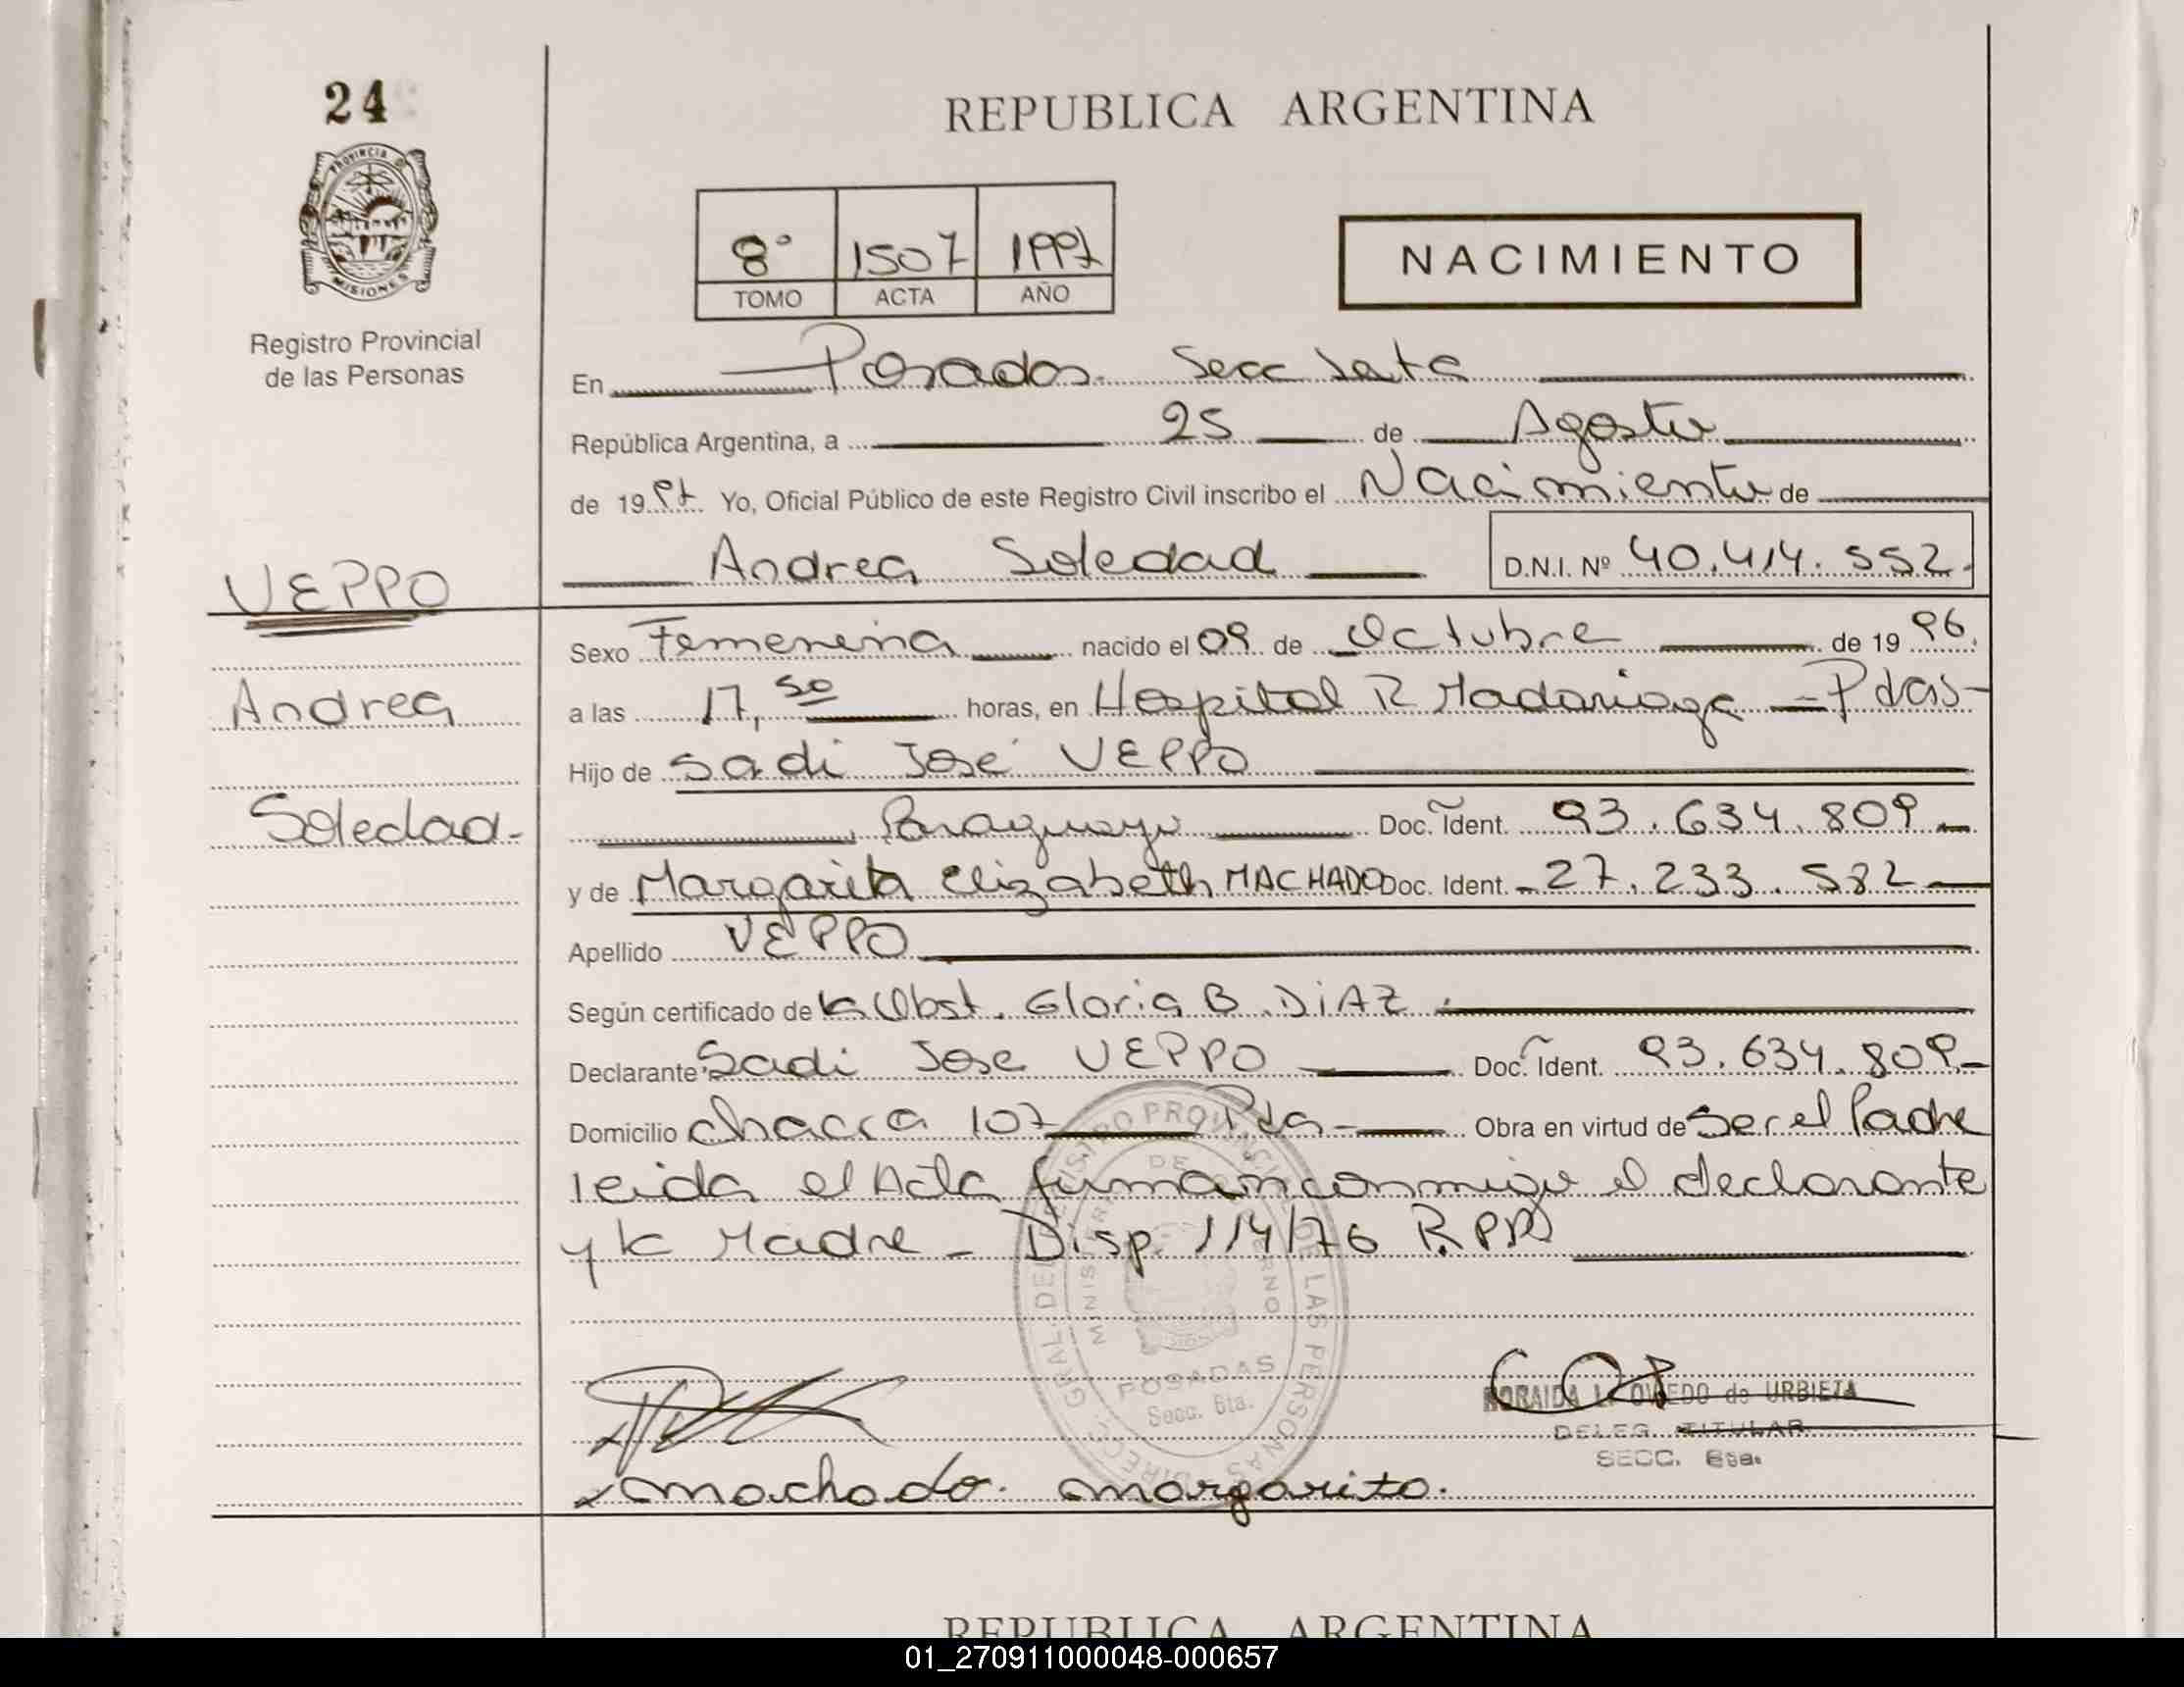 24
PROVINCIA DE
MISIONES
Registro Provincial
de las Personas
REPUBLICA ARGENTINA
8° 1507 1997
TOMO ACTA AÑO
NACIMIENTO
En Posadas. Secc Sexta
República Argentina, a 25 de Agosto
de 1997 Yo, Oficial Público de este Registro Civil inscribo el Nacimiento de
Andrea Soledad D.N.I. Nº 40.414.552.
VEPPO
Andrea
Soledad-
Sexo Femenina nacido el 09 de Octubre de 1996.
a las 17,50 horas, en Hospital R Madariaga - Pdas-
Hijo de Sadi José VEPPO
Paraguayo Doc. Ident. 93.634.809-
y de Margarita Elizabeth MACHADO Doc. Ident. 27.233.582
Apellido VEPPO
Según certificado de la Obst. Gloria B. DIAZ
Declarante: Sadi Jose VEPPO Doc. Ident. 93.634.809-
Domicilio Chacra 107 Pdas- Obra en virtud de Ser el Padre
leida el Acta firman conmigo el declarante
y la Madre - Disp 114/76 R.PP
DIRECC. GRAL. DEL REGISTRO PROVINCIAL DE LAS PERSONAS
MINISTERIO DE GOBIERNO
POSADAS
Secc. 6ta.
NORAIDA L. OVIEDO de URBIETA
DELEG. TITULAR
SECC. 6ta.
x machado. margarita.
REPUBLICA ARGENTINA
01_270911000048-000657